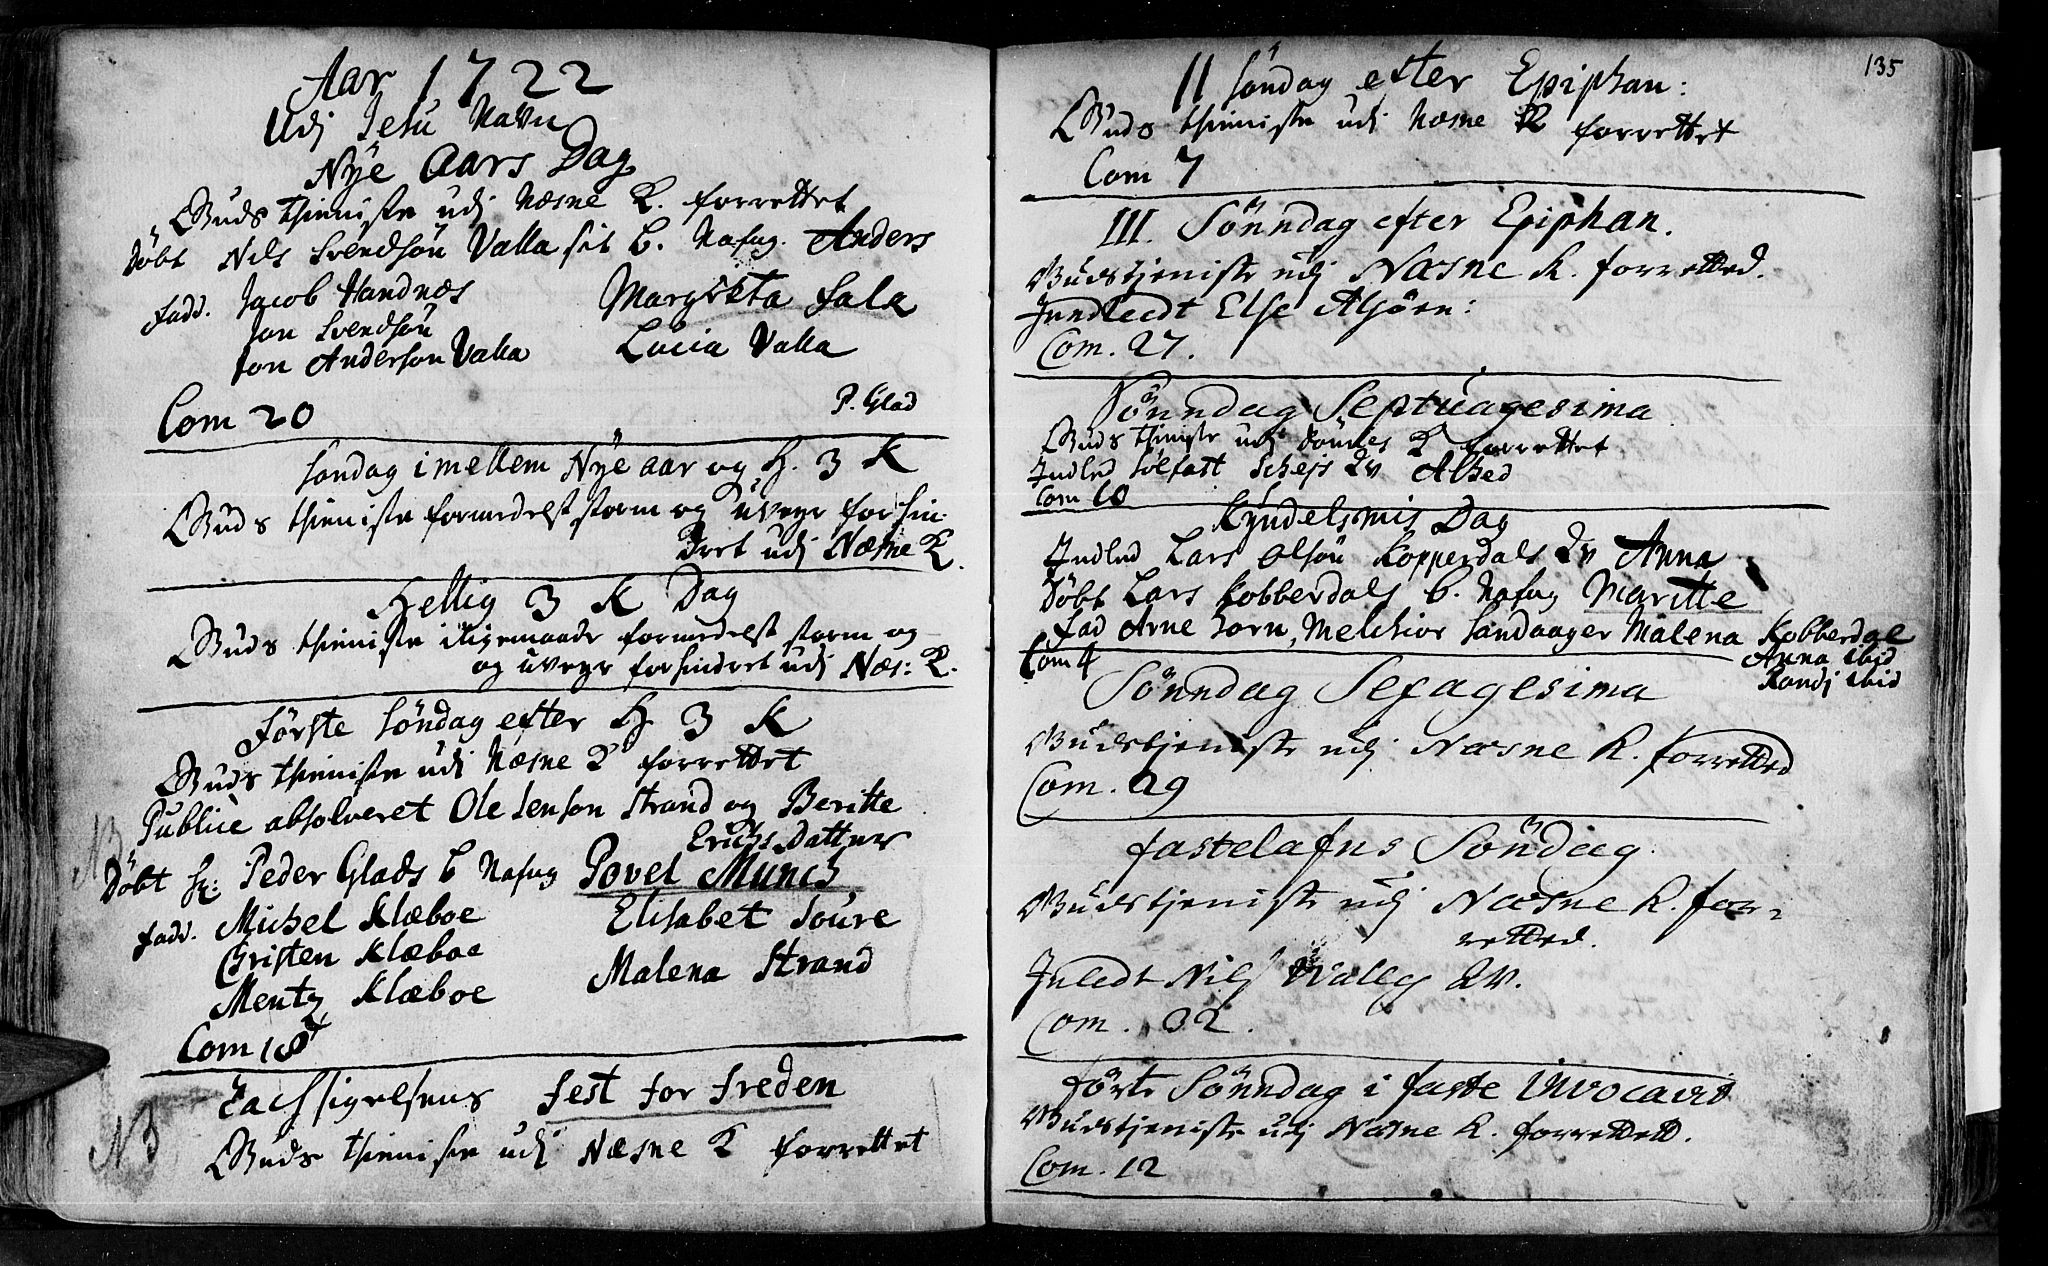 Aar 1722
Udj Jesu Navn
Nÿe Aars Dag
Guds thieniste udj Næsne K. forrettet
Døbt Nils Svendsøn Valla sit b. Nafng. Anders
fadd. Jacob Handnæs Margreta Sala
Jon Svendsøn
Jon Anderson Valla Lucia Valla
P. Glad
Com 20
Søndag imellem Nÿe aar og H. 3 K
Guds thieniste formedelst storm og uveyr forhin-
dret udj Næsne K.
Hellig 3 K Dag
Guds thieniste iligemaade formedelst storm og
og uveyr forhindret udj Næs: K.
Første Søndag efter H 3 K
Guds thieniste udj Næsne K forrettet
Publice absolveret Ole Jenson Strand og Beritte
Erichs Datter
NB
Døbt Hr: Peder Glads b Nafng Povel Munch
fadd. Michel Klæboe Elisabet
Christen Klæboe
Mentz Klæboe Malena Strand
Com 18
NB Tachsigelsens fest for freden
Guds thieniste udj Næsne K forrettet
135
II Søndag efter Epiphan:
Guds thieniste udj Næsne K forrettet
Com 7
III. Sönndag efter Epiphan.
Gudstjeniste udj Næsne K. forretted.
Jndledt Else Alsöen:
Com. 27.
Sönndag Septuagesima
Guds thieniste udj Dønnes K forrettet
Indled Qv Alsed
Com 10
Kÿndelsmis Dag
Indled Lars Olsøn Kopperdals Qv Anna
Døbt Lars Kobberdals b. Nafng Maritte
fad Arne horn, Melchior Sandaager Malena Kobberdal
Anna ibid
Randj ibid
Com 4
Sönndag Sexagesima
Gudstjeniste udj Næsne K. forretted
Com. 29
fastelafns Söndag
Gudstjeniste udj Næsne K. for-
retted.
Jnledt Nils Qv.
Com. 32.
förste Sönndag i faste Invocavit
Gudstjeniste udj Næsne K. forrettett.
Com. 12